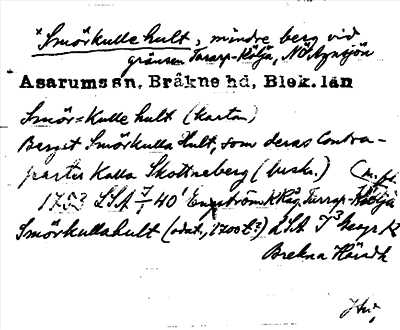 *Smörkulle hult, mindre berg vid
gränsen Tararp-Kölja, NÖ Agnsjön
Asarums sn, Bräkne hd, Blek. län
Smör=Kulle hult (kartan)
Berget Smörkulla Hult, som deras Contra-
parter Kalla Skottneberg (besk.)
1753 LSA 40 Engström Tararp-Kölja
Smörkullahult (odat., 1700t?) LSA bergs
Brekna Häradh